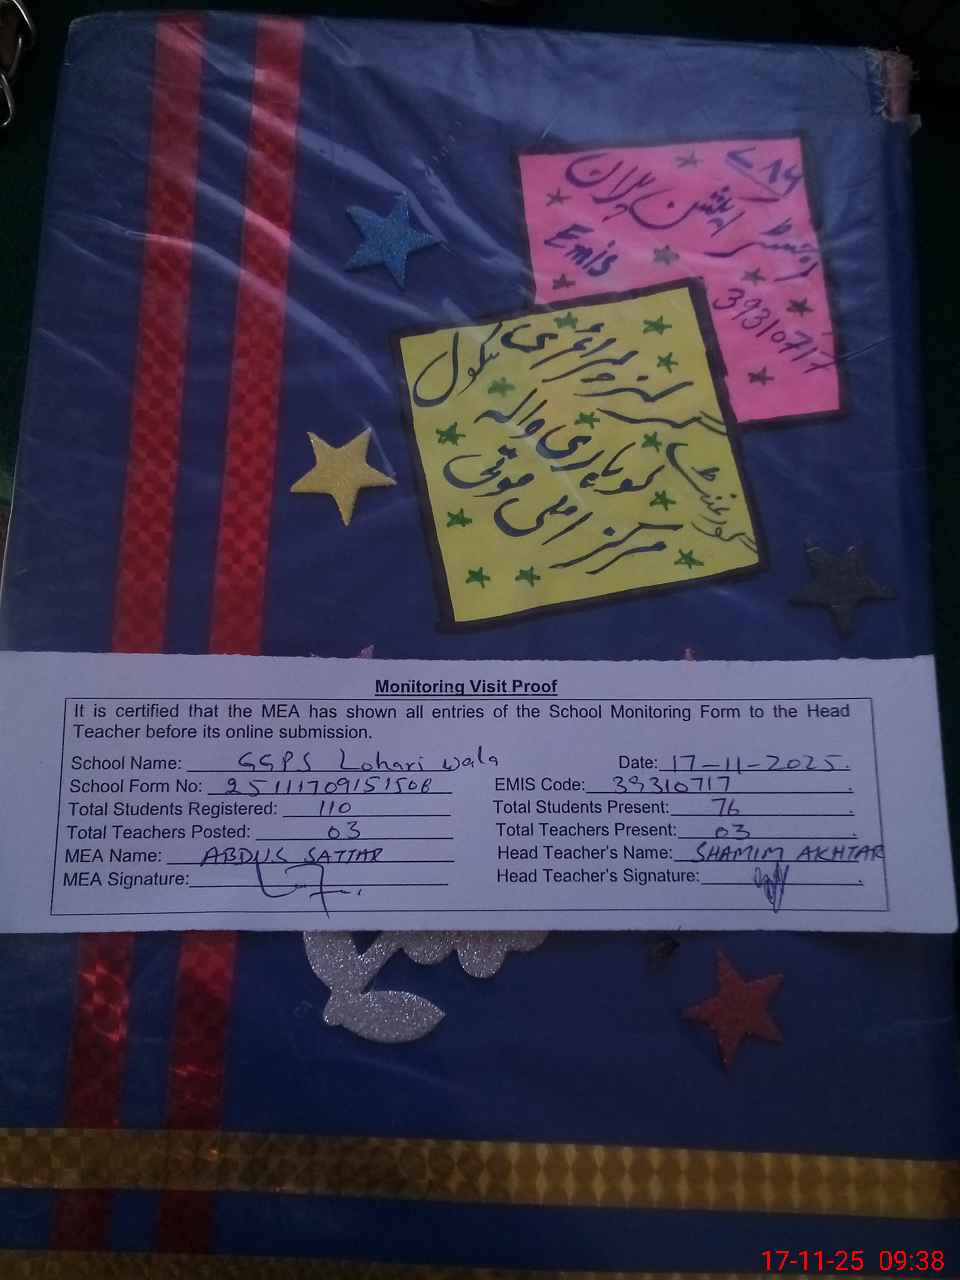 ۷۸۶
Emis
39310717
گورنمنٹ گرلز پرائمری سکول
مرکز
Monitoring Visit Proof
It is certified that the MEA has shown all entries of the School Monitoring Form to the Head
Teacher before its online submission.
School Name: GGPS Lohari wala Date: 17-11-2025.
School Form No: 25111709151508 EMIS Code: 39310717
Total Students Registered: 110 Total Students Present: 76
Total Teachers Posted: 03 Total Teachers Present: 03
MEA Name: ABDUS SATTAR Head Teacher's Name: SHAMIM AKHTAR
MEA Signature: Head Teacher's Signature:
17-11-25 09:38